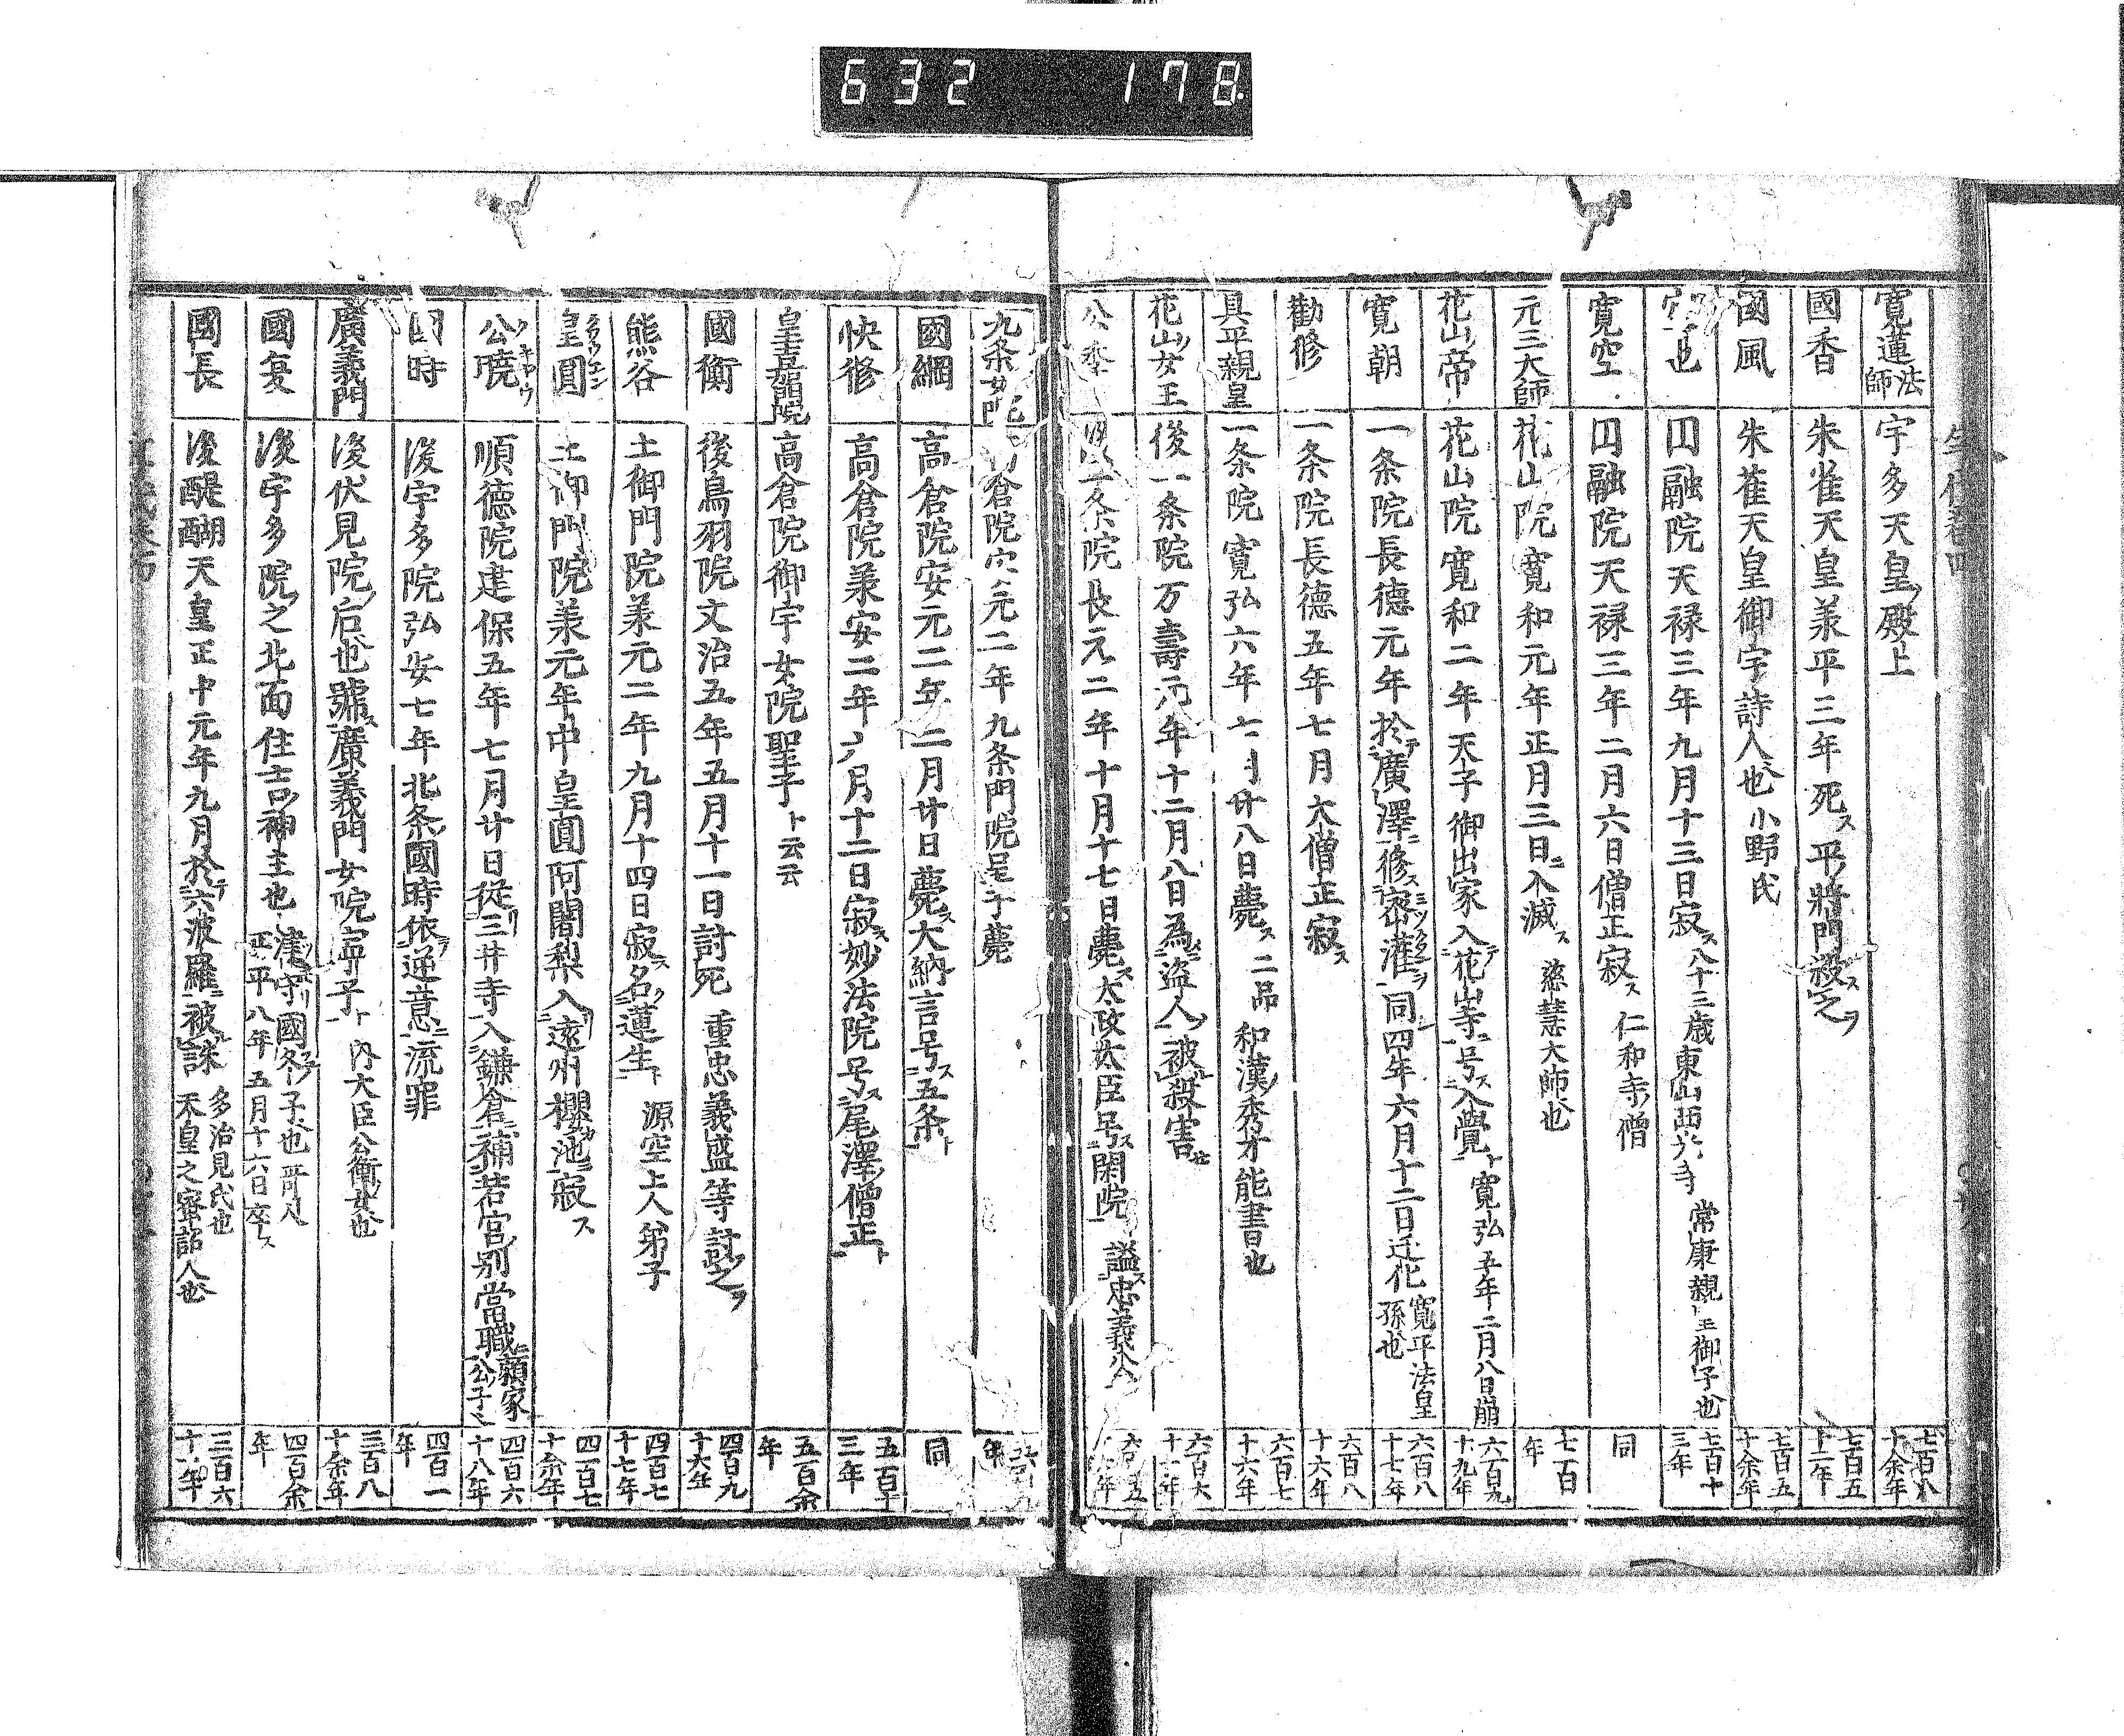 632 178
寛蓮法師 宇多天皇ノ殿上 七百八十余年
國香 朱雀天皇義平三年死ス平ノ將門殺ス之ヲ 七百五十二年
國風 朱雀天皇御宇詩人也 小野氏 七百五十余年
也 囙融院天禄三年九月十三日寂ス八十三歳東山西 寺 常康親王御子也 七百十三年
寛空 囙融院天禄三年二月六日僧正寂ス 仁和寺ノ僧 同
元三大師 花山院寛和元年正月三日ニ入滅ス 慈慧大師也 七百年
花山ノ帝 花山院寛和二年天子御出家入テ花山寺ニ号ス入覺ト 寛弘五年二月八日崩 六百九十九年
寛朝 一条院長德元年於テ廣澤ニ修ス密灌ヲ同四年六月十二日迁化 寛平法皇孫也 六百八十七年
勸修 一条院長德五年七月大僧正寂ス 六百八十六年
具平親皇 一条院寛弘六年七月廿八日薨ス 二品 和漢ノ秀才能書也 六百七十六年
花山ノ女王 後一条院万壽元年十二月八日為ニ盗人ノ被殺害セ 六百六十一年
公季 一条院長元二年十月十七日薨ス太政大臣号ス閑院ト謚ス忠義公
九条女院 倉院 元二年九条門院 薨
國綱 高倉院安元二年二月廿日薨ス大納言号ス五条ト 同
快修 高倉院義安二年六月十二日寂ス妙法院号ス尾澤ノ僧正ト 五百十三年
皇嘉門院 高倉院御宇女院聖子ト云云 五百余年
國衡 後鳥羽院文治五年五月十一日討死 重忠義盛等討ツ之ヲ 四百九十六年
熊谷 土御門院義元二年九月十四日寂ス名ク蓮生ト 源空上人弟子 四百七十七年
皇圓 土御門院義元年中皇圓阿闍梨入遠州櫻カ池ニ寂ス 四百七十余年
公曉 順德院建保五年七月廿日從三井寺入鎌倉ニ補若宮ノ別當職ニ頼家公ノ子 四百六十八年
國時 後宇多院弘安七年北条國時依テ逆意ニ流罪 四百一年
廣義門 後伏見院ノ后也號ス廣義門女院寧子ト 內大臣公衡ノ女也 三百八十余年
國夏 後宇多院ノ之北面住吉ノ神主也 津守國冬ノ子也哥人 正平八年五月十六日卒ス 四百余年
國長 後醍醐天皇正中元年九月於テ六波羅ニ被誅 多治見氏也天皇之密詔人也 三百六十一年